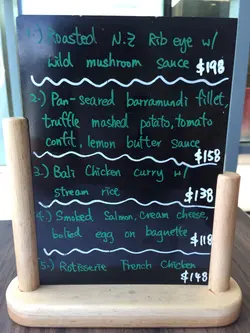 1.) Roasted N.Z Rib eye w/
wild mushroom sauce $198
2.) Pan-seared barramundi fillet,
truffle mashed potato, tomato
confit, lemon butter sauce
$158
3.) Bali Chicken curry w/
stream rice $138
4.) Smoked Salmon, cream cheese,
bolied egg on baguette $118
5.) Rotisserie French Chicken
$148